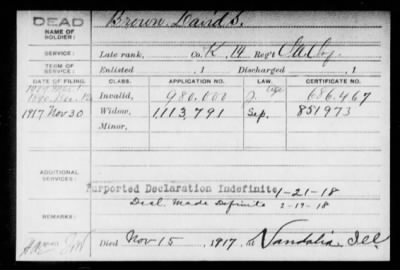 DEAD
NAME OF SOLDIER:
Brown, David S.
SERVICE:
Late rank, Co. K, 14 Reg't Cav.
TERM OF SERVICE:
Enlisted , 1 Discharged , 1
DATE OF FILING. CLASS. APPLICATION NO. LAW. CERTIFICATE NO.
Invalid, 980.000 686.467
1917 Nov 30 Widow, 1,113,791 Sep. 851973
Minor,
ADDITIONAL SERVICES:
Purported Declaration Indefinite 1-21-18
Decl. Made Definite 2-19-18
REMARKS:
Died Nov 15, 1917, at Vandalia Ill